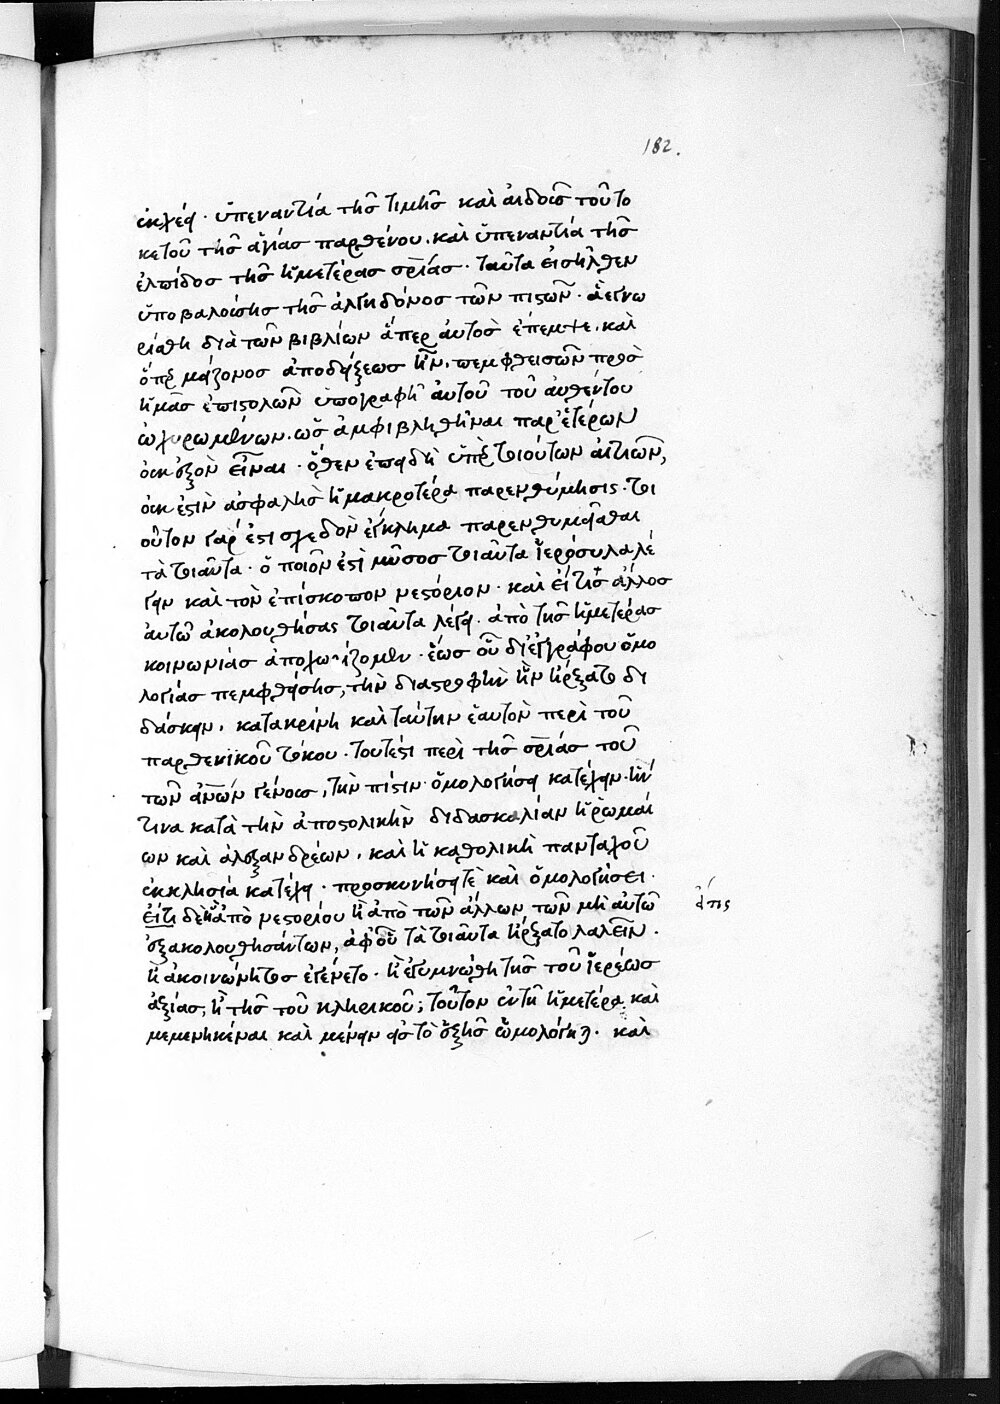 182.
ἐκχέει. ὑπεναντία τῆς τιμῆς καὶ αἰδοῖς τοῦ το
κετοῦ τῆς ἁγίας παρθένου. καὶ ὑπεναντία τῆς
ἐλπίδος τῆς ἡμετέρας σρίας. ταῦτα εἰσῆλθεν
ὑποβαλούσης τῆς ἀλγηδόνος τῶν πιστῶν.
ρίσθη διὰ τῶν βιβλίων ἅπερ αὐτὸς ἔπεμψε. καὶ
ὅπερ μείζονος ἀποδείξεως ἦν. πεμφθεισῶν πρὸς
ἡμᾶς ἐπιστολῶν ὑπογραφῇ αὐτοῦ τοῦ αὐθέντου
ὠχυρωμένων. ὡς ἀμφιβληθῆναι παρ' ἑτέρων
οὐκ ἐξὸν εἶναι. ὅθεν ἐπειδὴ ὑπὲρ τοιούτων αἰτιῶν,
οὐκ ἔστιν ἀσφαλὴς ἡ μακροτέρα παρενθύμησις. τοι
οῦτον γάρ ἐστι σχεδὸν ἔγκλημα παρενθυμεῖσθαι
τὰ τοιαῦτα. ὁποῖόν ἐστι μῦσος τοιαῦτα ἱερόσυλα λέ
γειν καὶ τὸν ἐπίσκοπον νεστόριον. καὶ εἴ τις ἄλλος
αὐτῶ ἀκολουθήσας τοιαῦτα λέγει. ἀπὸ τῆς ἡμετέρας
κοινωνίας ἀποχωρίζομεν. ἕως οὗ δι' ἐγγράφου ὁμο
λογίας πεμφθείσης, τὴν διαστροφὴν ἣν ἤρξατο δι
δάσκειν, κατακρίνη καὶ ταύτην ἑαυτὸν περὶ τοῦ
παρθενϊκοῦ τόκου. τουτέστι περὶ τῆς σρίας τοῦ
τῶν ἀνῶν γένους, τὴν πίστιν ὁμολογήσει κατέχειν. ἥν
τινα κατὰ τὴν ἀποστολικὴν διδασκαλίαν ἡ ῥωμαί
ων καὶ ἀλεξανδρέων. καὶ ἡ καθολικὴ πανταχοῦ
ἐκκλησία κατέχει. προσκυνήσει τὲ καὶ ὁμολογήσει.
εἴ τι δὲ ἢ ἀπὸ νεστορίου ἢ ἀπὸ τῶν ἄλλων τῶν μὴ αὐτῶ
ἐξακολουθησάντων, ἀφ' οὗ τὰ τοιαῦτα ἤρξατο λαλεῖν.
ἢ ἀκοινώνητος ἐγένετο. ἢ ἐγυμνώθη τῆς τοῦ ἱερέως
ἀξίας, ἢ τῆς τοῦ κληρικοῦ; τοῦτον ἐν τῇ ἡμετέρα καὶ
μεμενηκέναι καὶ μένειν εἰς τὸ ἑξῆς ὡμολόγει. καὶ